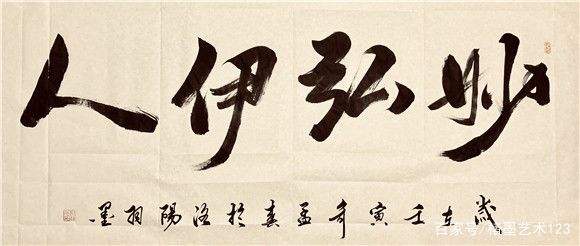 妙弘伊人
歲在壬寅年孟春於洛陽墨
百家号/墨艺术123